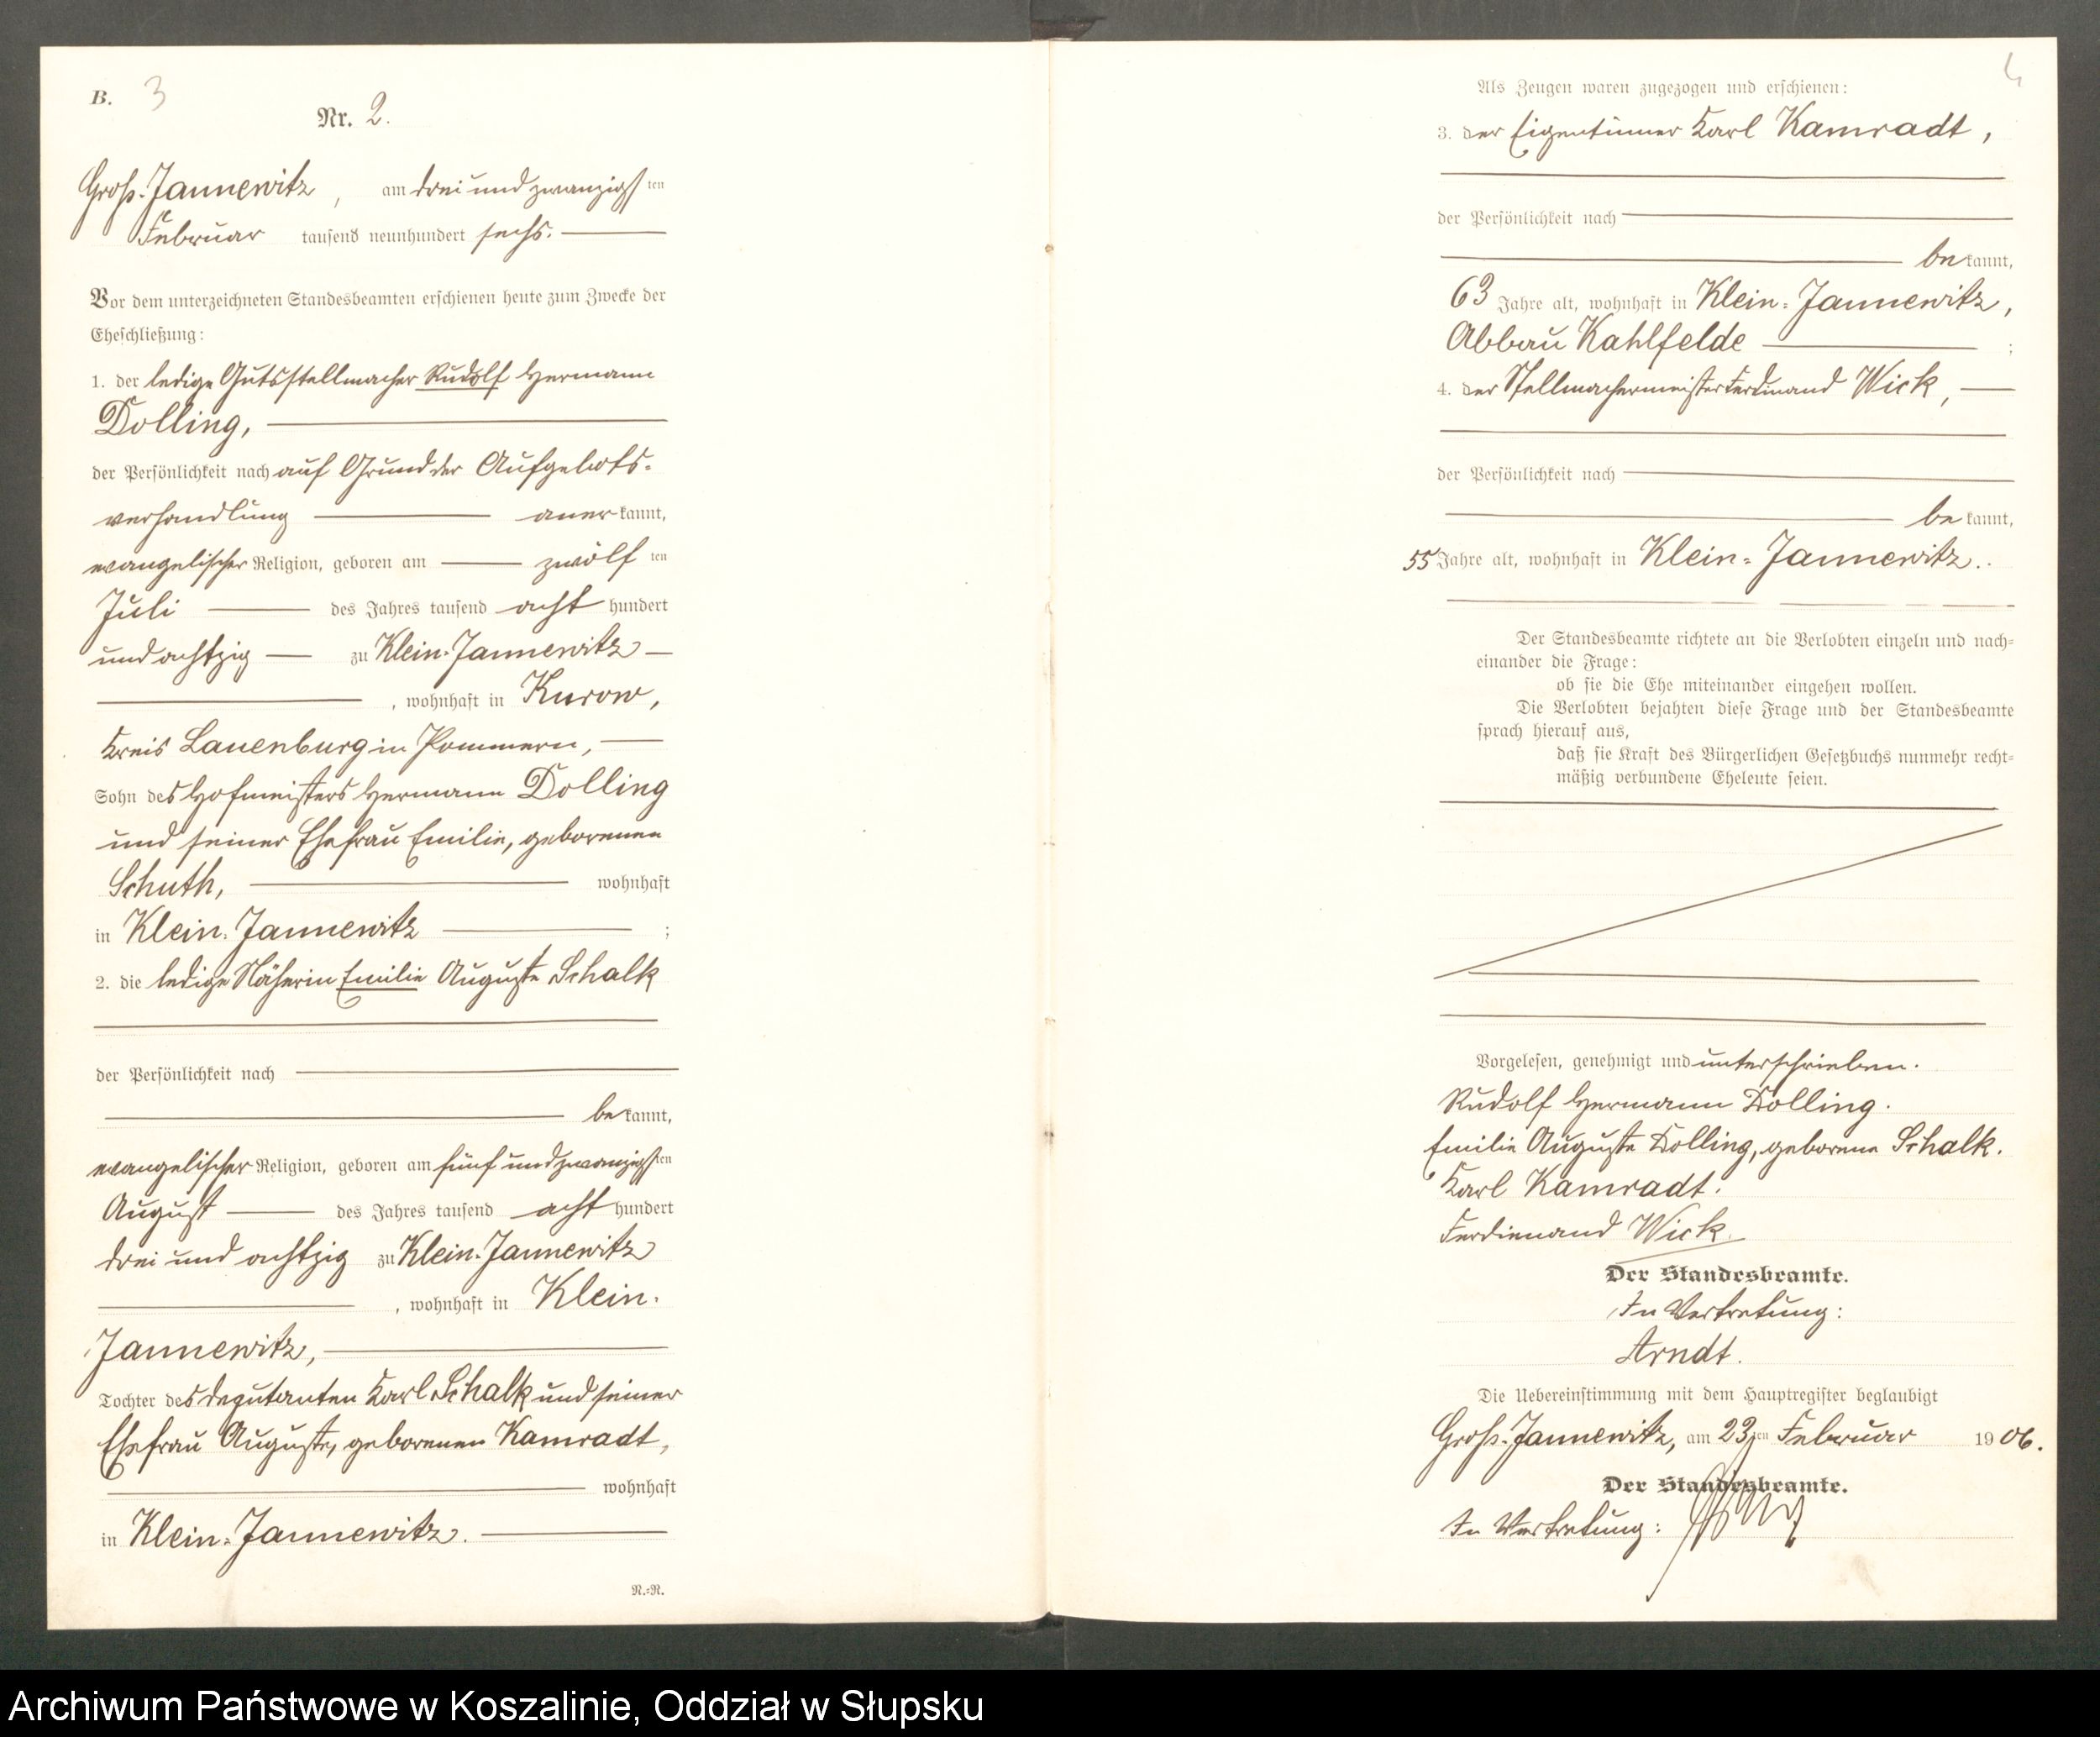 B. 3
Nr. 2.
Groß-Jannewitz, am drei und zwanzigsten
Februar tausend neunhundert sechs.
Vor dem unterzeichneten Standesbeamten erschienen heute zum Zwecke der
Eheschließung:
1. der ledige Gutsstellmacher Rudolf Hermann
Dolling,
der Persönlichkeit nach auf Grund der Aufgebots-
verhandlung anerkannt,
evangelischer Religion, geboren am zwölften
Juli des Jahres tausend acht hundert
und achtzig zu Klein-Jannewitz
, wohnhaft in Kurow,
Kreis Lauenburg in Pommern,
Sohn des Hofmeisters Hermann Dolling
und seiner Ehefrau Emilie, geborenen
Schuth, wohnhaft
in Klein-Jannewitz ;
2. die ledige Näherin Emilie Auguste Schalk
der Persönlichkeit nach
bekannt,
evangelischer Religion, geboren am fünf und zwanzigsten
August des Jahres tausend acht hundert
drei und achtzig zu Klein-Jannewitz
, wohnhaft in Klein-
Jannewitz,
Tochter des Deputanten Karl Schalk und seiner
Ehefrau Auguste, geborenen Kamradt,
wohnhaft
in Klein-Jannewitz.
N.=N.
4
Als Zeugen waren zugezogen und erschienen:
3. der Eigentümer Karl Kamradt,
der Persönlichkeit nach
bekannt,
63 Jahre alt, wohnhaft in Klein-Jannewitz,
Abbau Kahlfelde ;
4. der Stellmachermeister Ferdinand Wick,
der Persönlichkeit nach
bekannt,
55 Jahre alt, wohnhaft in Klein-Jannewitz.
Der Standesbeamte richtete an die Verlobten einzeln und nach-
einander die Frage:
ob sie die Ehe miteinander eingehen wollen.
Die Verlobten bejahten diese Frage und der Standesbeamte
sprach hierauf aus,
daß sie Kraft des Bürgerlichen Gesetzbuchs nunmehr recht-
mäßig verbundene Eheleute seien.
Vorgelesen, genehmigt und unterschrieben.
Rudolf Hermann Dolling.
Emilie Auguste Dolling, geborene Schalk.
Karl Kamradt.
Ferdienand Wick.
Der Standesbeamte.
In Vertretung:
Arndt.
Die Uebereinstimmung mit dem Hauptregister beglaubigt
Groß-Jannewitz, am 23ten Februar 1906.
Der Standesbeamte.
In Vertretung:
Archiwum Państwowe w Koszalinie, Oddział w Słupsku